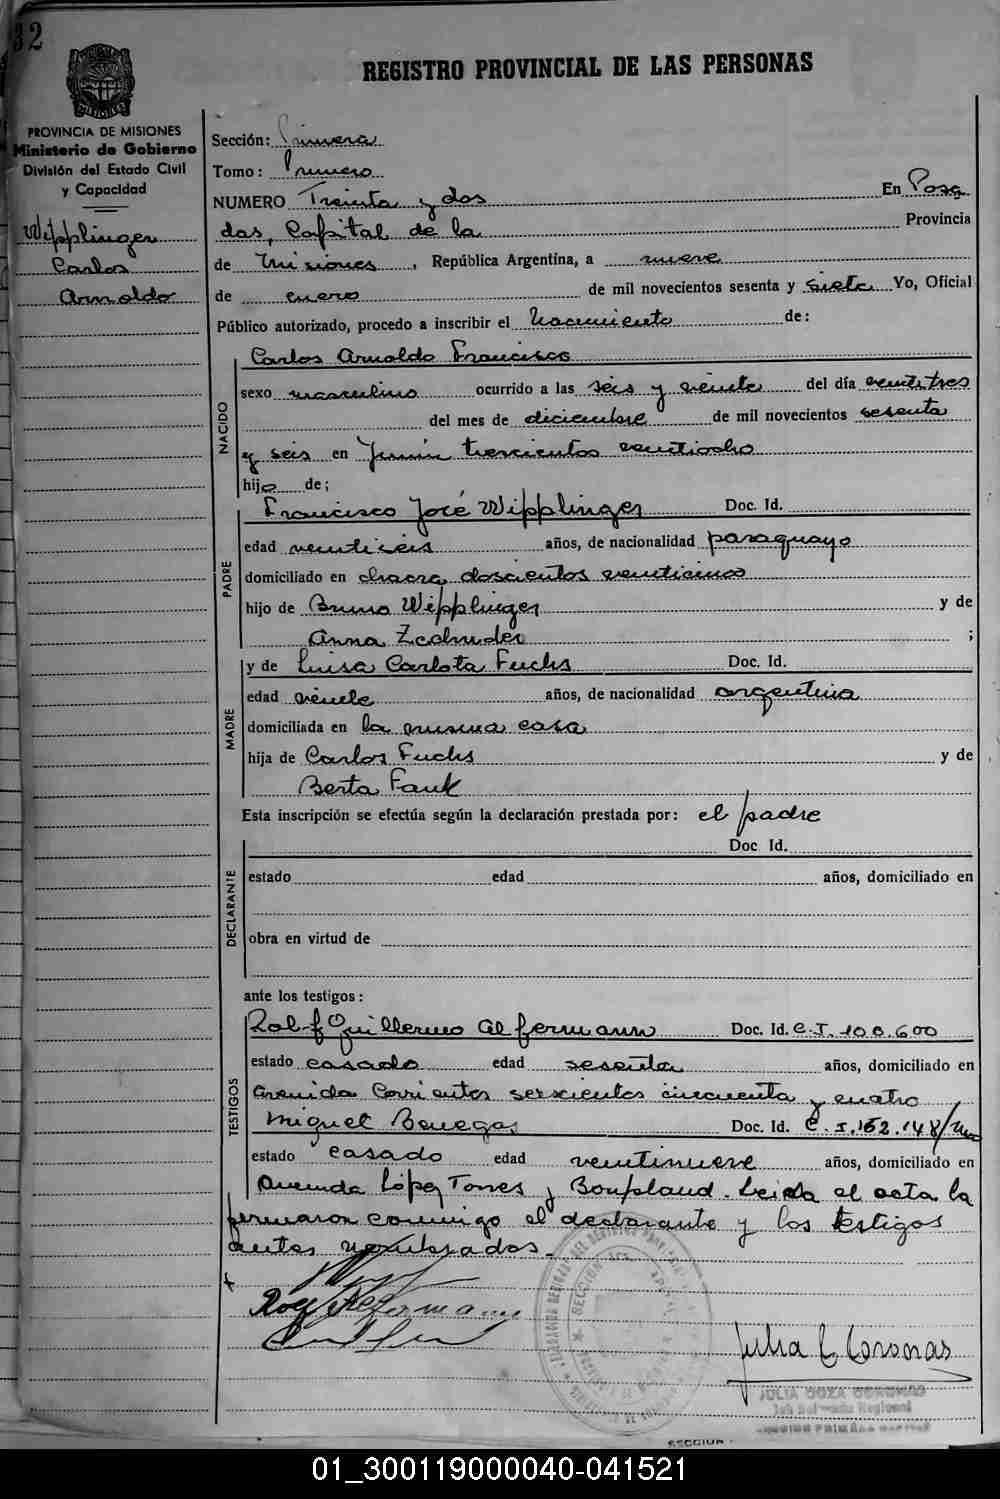 32
REGISTRO PROVINCIAL DE LAS PERSONAS
MISIONES
PROVINCIA DE MISIONES
Ministerio de Gobierno
División del Estado Civil
y Capacidad
Wipplinger
Carlos
Arnoldo
Sección: Primera
Tomo: Primero
NUMERO Treinta y dos En Posa
das, Capital de la Provincia
de Misiones, República Argentina, a nueve
de enero de mil novecientos sesenta y siete Yo, Oficial
Público autorizado, procedo a inscribir el Nacimiento de:
NACIDO
Carlos Arnoldo Francisco
sexo masculino ocurrido a las seis y veinte del día veintitres
del mes de diciembre de mil novecientos sesenta
y seis en Junín trescientos veintiocho
hijo de;
PADRE
Francisco José Wipplinger Doc. Id.
edad veintiseis años, de nacionalidad paraguayo
domiciliado en chacra doscientos veinticinco
hijo de Bruno Wipplinger y de
Anna Zcohuder ;
MADRE
y de Luisa Carlota Fuchs Doc. Id.
edad veinte años, de nacionalidad argentina
domiciliada en la misma casa
hija de Carlos Fuchs y de
Berta Fank
Esta inscripción se efectúa según la declaración prestada por: el padre
Doc Id.
DECLARANTE
estado edad años, domiciliado en
obra en virtud de
ante los testigos:
TESTIGOS
Rolf Guillermo Alfermann Doc. Id. C.I. 100.600
estado casado edad sesenta años, domiciliado en
Avenida Corrientes seiscientos cincuenta y cuatro
Miguel Benegas Doc. Id. C.I. 152.148/
estado casado edad veintinueve años, domiciliado en
Avenida López Torres y Bonpland. Leida el acta la
firmaron conmigo el declarante y los testigos
antes nombrados.
Rolf Alfermann
Julia C Coronas
JULIA COZA CORONAS
SECCION
01_300119000040-041521